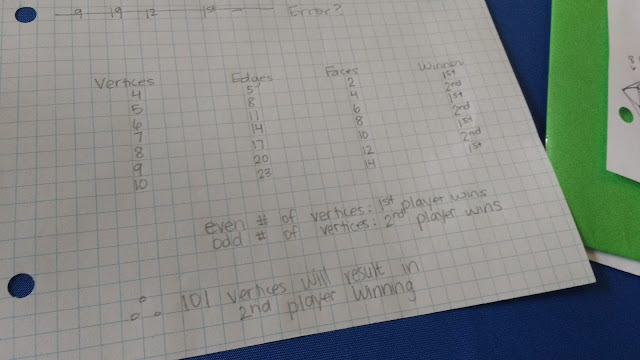 9 19 12 1st — Error?
Vertices Edges Faces Winner
4 5 2 1st
5 8 4 2nd
6 11 6 1st
7 14 8 2nd
8 17 10 1st
9 20 12 2nd
10 23 14 1st
even # of vertices: 1st player wins
odd # of vertices: 2nd player wins
∴ 101 vertices will result in
2nd player winning